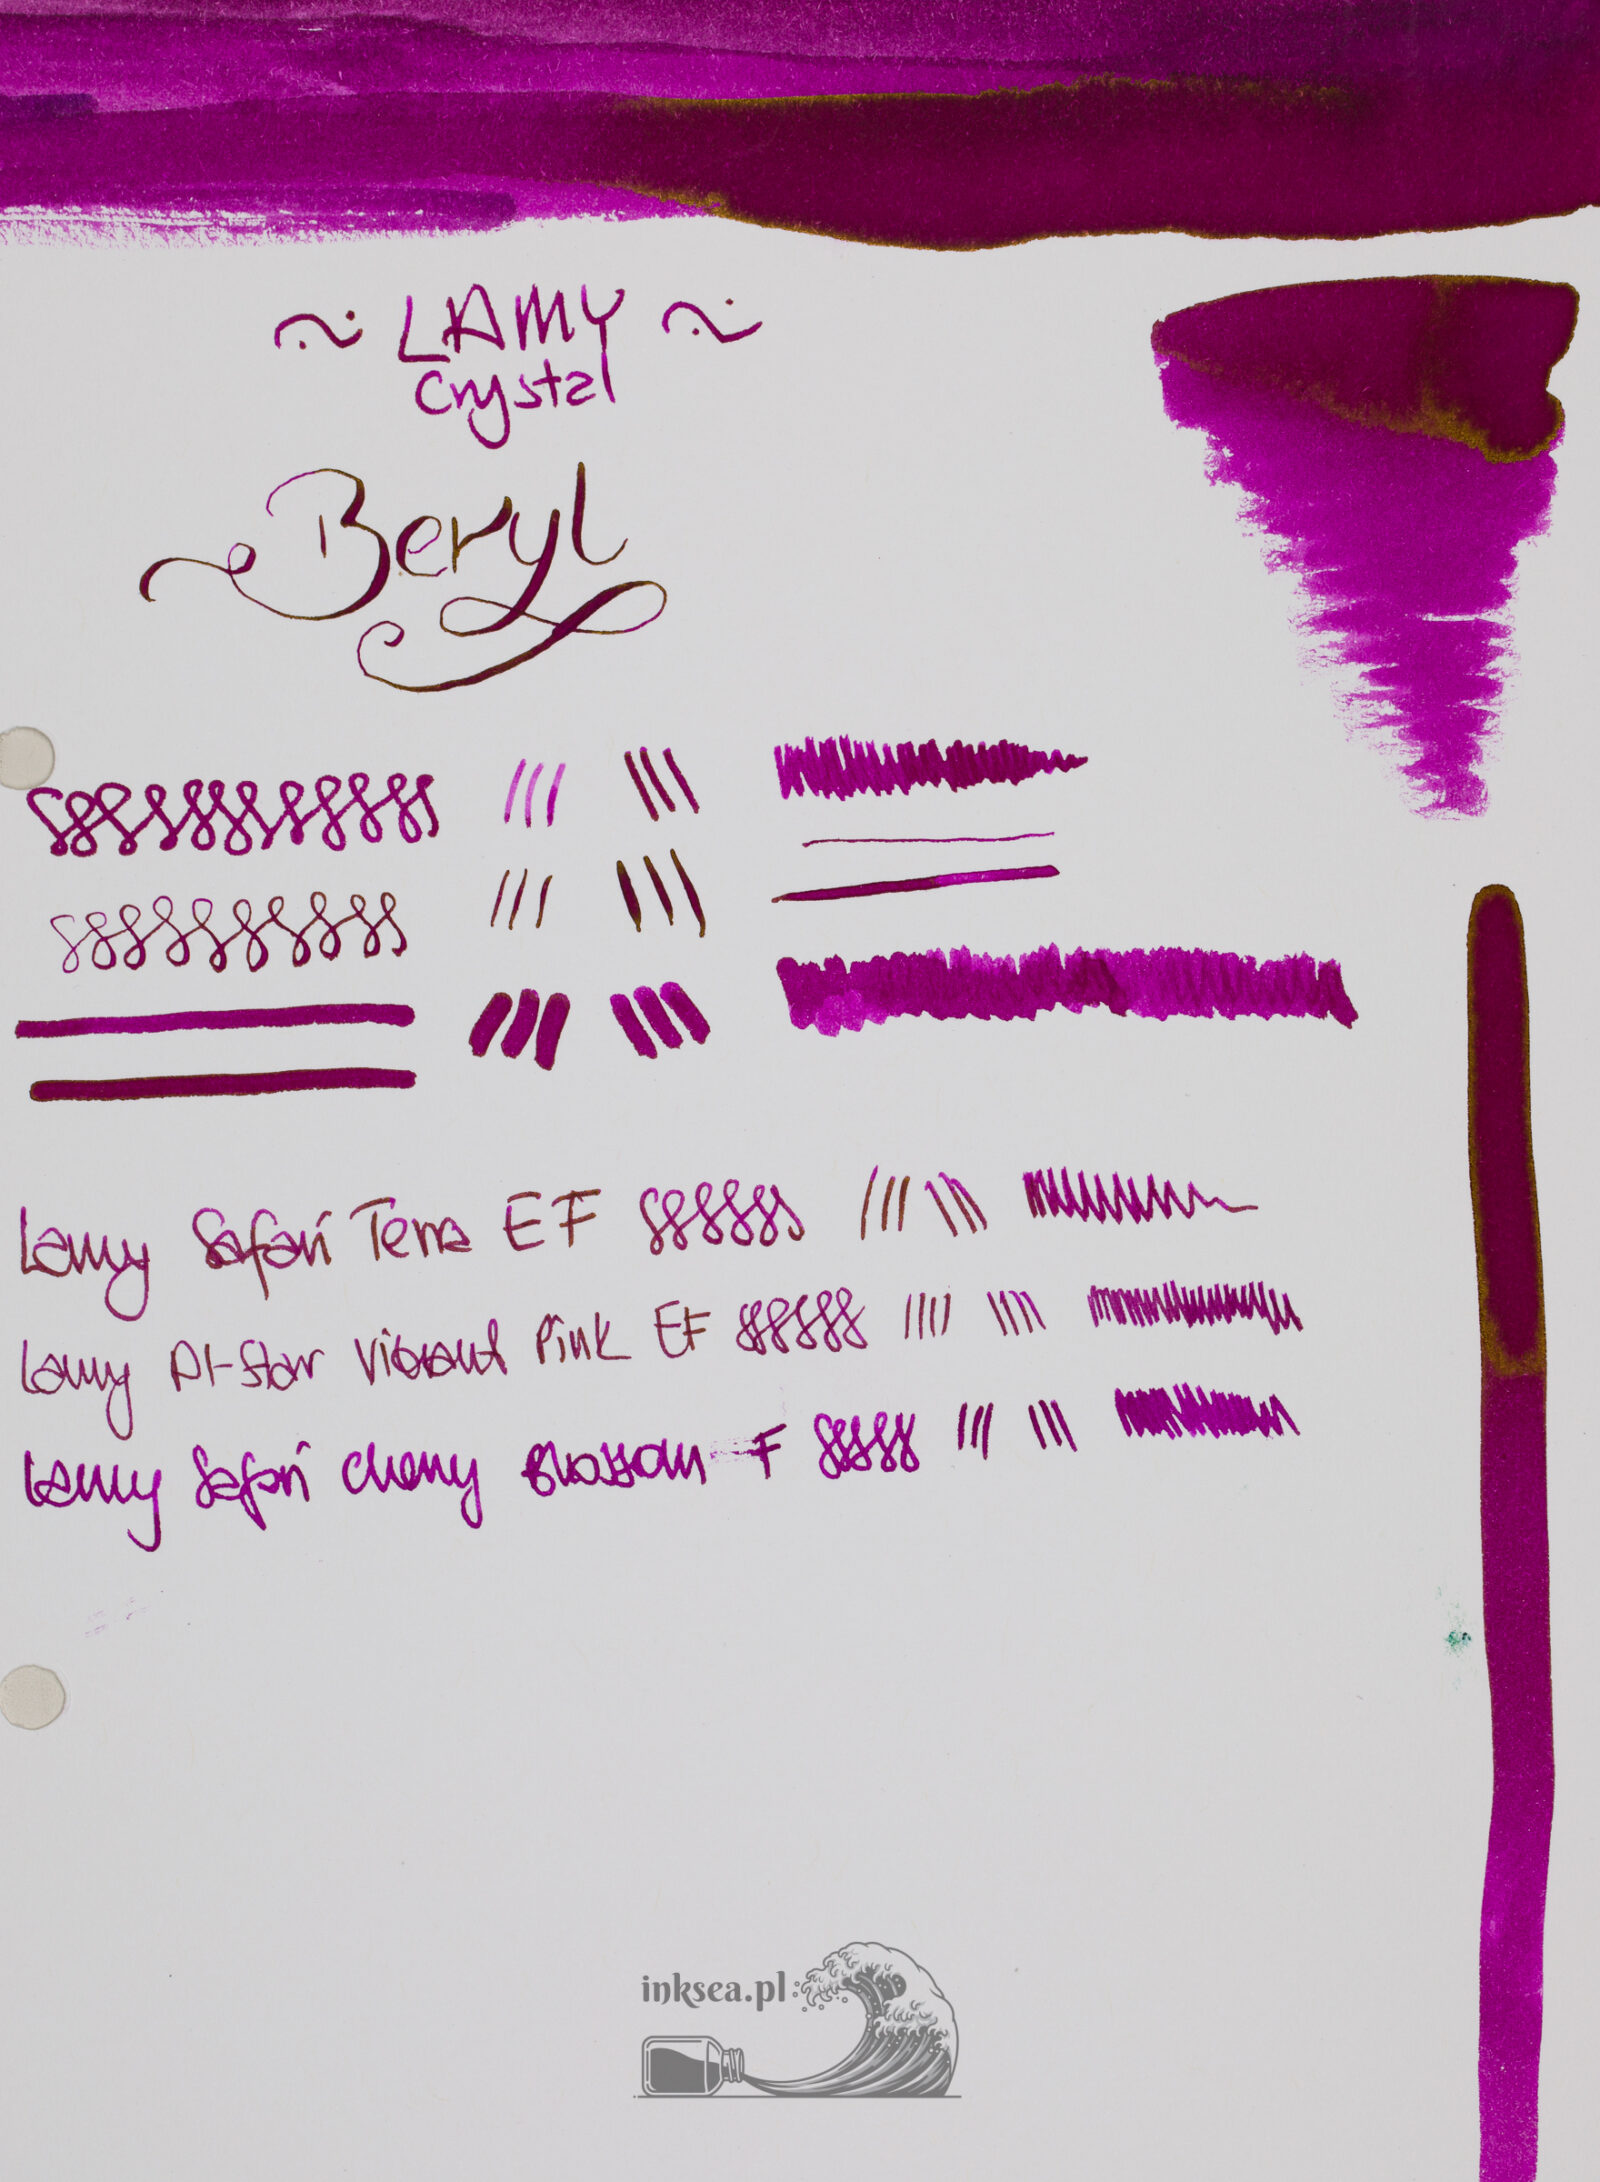 ~ LAMY ~
Crystal
Beryl
Lamy Safari Terra EF
Lamy Al-Star Vibrant Pink EF
Lamy Safari Cherry Blossom F
inksea.pl